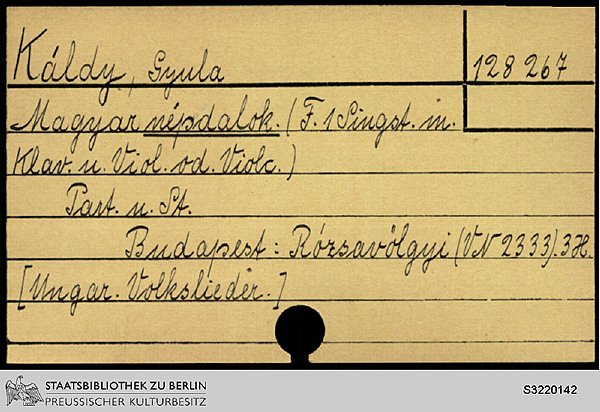 Káldy, Gyula
128 267
Magyar népdalok. (F. 1 Singst. m.
Klav. u. Viol. od. Violc.)
Part. u. St.
Budapest: Rózsavölgyi (VN 2333). 3 H.
[Ungar. Volkslieder.]
STAATSBIBLIOTHEK ZU BERLIN
PREUSSISCHER KULTURBESITZ
S3220142